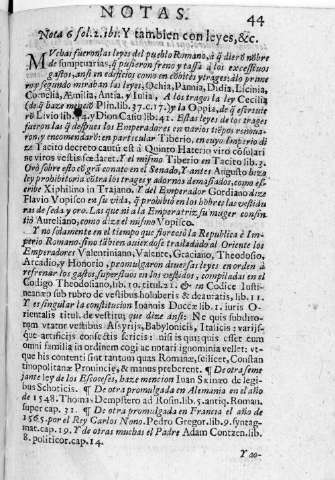 NOTAS.
44
Nota 6 fol. 2. ibi: Y tambien con leyes, &c.
MVchas fueron las leyes del pueblo Romano, à q̃ dierõ nõbre
de sumptuarias, q̃ pusieron freno y tassa à los excessiuos
gastos, ansi en edificios como en cõbites y trages: a lo prime
ro y segundo miraban las leyes, Ochia, Fannia, Didia, Licinia,
Cornelia, Æmilia, Antia, y Iulia; A los trages la ley Cecilia
(de q̃ haze Plin. lib. 37. c. 17.) y la Oppia, de q̃ escriuie
rõ Livio lib. y Dion Casio lib. 41. Estas leyes de los trages
fueron las q̃ despues los Emperadores en varios tiẽpos renoua-
ron, y encomendarõ: en particular Tiberio, en cuyo Imperio di
ze Tacito decreto cautũ est à Quinto Haterio viro cõsulari
ne viros vestis fœdaret. Y el mismo Tiberio en Tacito lib. 3.
Orò sobre esto cõ grã conato en el Senado, Y antes Augusto hizo
ley prohibitoria cõtra los trages y adornos demasiados, como es-
cribe Xiphilino in Trajano. Y del Emperador Gordiano dize
Flavio Vopisco en su vida, q̃ prohibiò en los hõbres las vestidu
ras de seda y oro. Las que ni a la Emperatriz su muger consin
tiò Aureliano, como dize el mismo Vopisco.
Y no solamente en el tiempo que floreciò la Republica è Im-
perio Romano, sino tãbien auiendose trasladado al Oriente los
Emperadores Valentiniano, Valente, Graciano, Theodosio,
Arcadio, y Honorio, promulgaron diuersas leyes en orden à
refrenar los gastos superfluos en los vestidos, compiladas en el
Codigo Theodosiano, lib. 10. titul. 21. & en Codice Iusti-
neanæo sub rubro de vestibus holoberis & deauratis, lib. 11.
Y es singular la constitucion Ioannis Ducæ lib. 1. iuris O-
rientalis titul. de vestitu; que dize ansi: Ne quis subdito-
rum vtatur vestibus Assyrijs, Babylonicis, Italicis: varijs-
que artificijs confectis sericis: nisi is qui; quis esset cum
omni familia in ordinem cogi ac notari ignominia vellet: vt-
que his contenti sint tantum quas Romanæ, scilicet, Constan
tinopolitanæ Prouinciæ, & manus preberent. ¶ De otra seme
jante ley de los Escoceses, haze mencion Iuan Skinæo de legi-
bus Schoticis. ¶ De otra promulgada en Alemania en el año
de 1548. Thoma, Dempstero ad Rosin. lib. 5. antiq. Roman.
super cap. 31. ¶ De otra promulgada en Francia el año de
1565. por el Rey Carlos Nono. Pedro Gregor. lib. 9. syntag-
mat. cap. 19. Y de otras muchas el Padre Adam Contzen. lib.
8. politicor. cap. 14.
Y no-